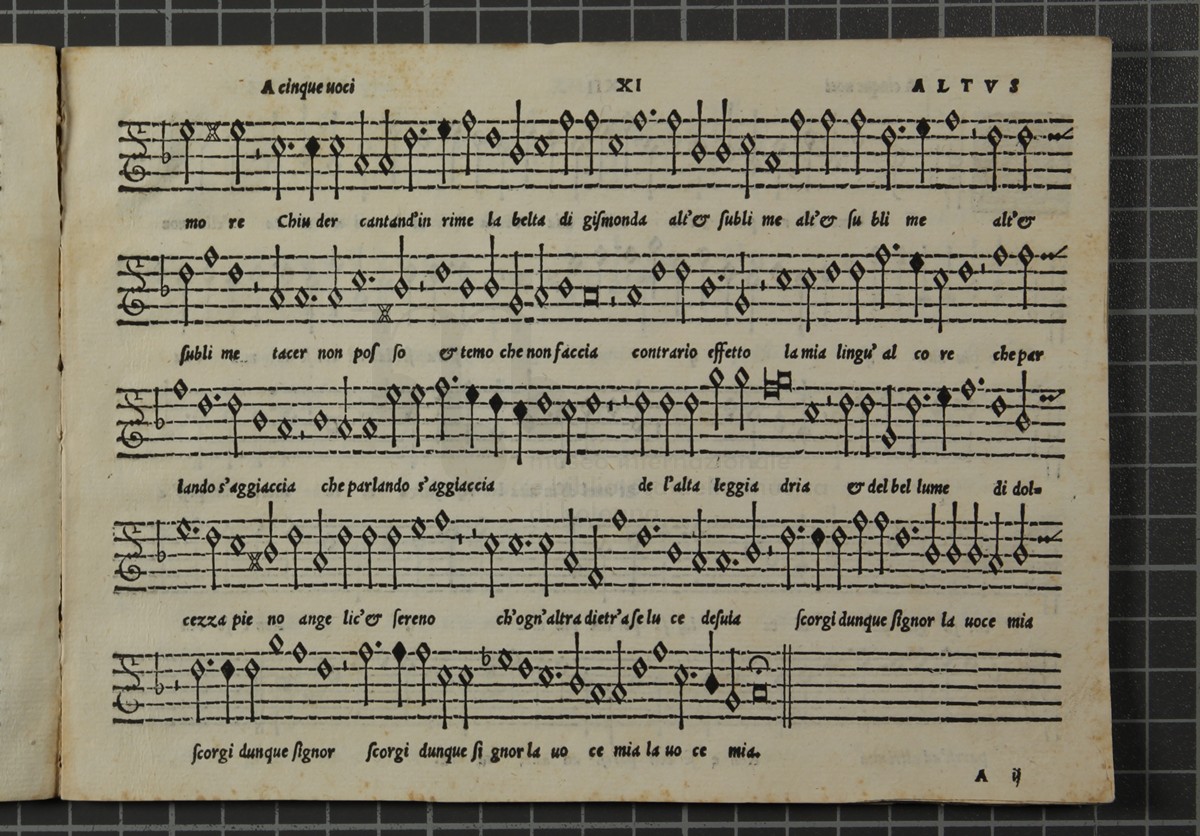 A cinque uoci XI ALTVS
mo re Chiu der cantand'in rime la belta di giſmonda alt'& ſubli me alt'& ſu bli me alt'&
ſubli me tacer non poſ ſo & temo che non faccia contrario effetto la mia lingu' al co re che par
lando s'aggiaccia che parlando s'aggiaccia de l'alta leggia dria & del bel lume di dol=
cezza pie no ange lic'& ſereno ch'ogn'altra dietr'a ſe lu ce deſuia ſcorgi dunque ſignor la uoce mia
ſcorgi dunque ſignor ſcorgi dunque ſi gnor la uo ce mia la uo ce mia.
A ij
museo internazionale